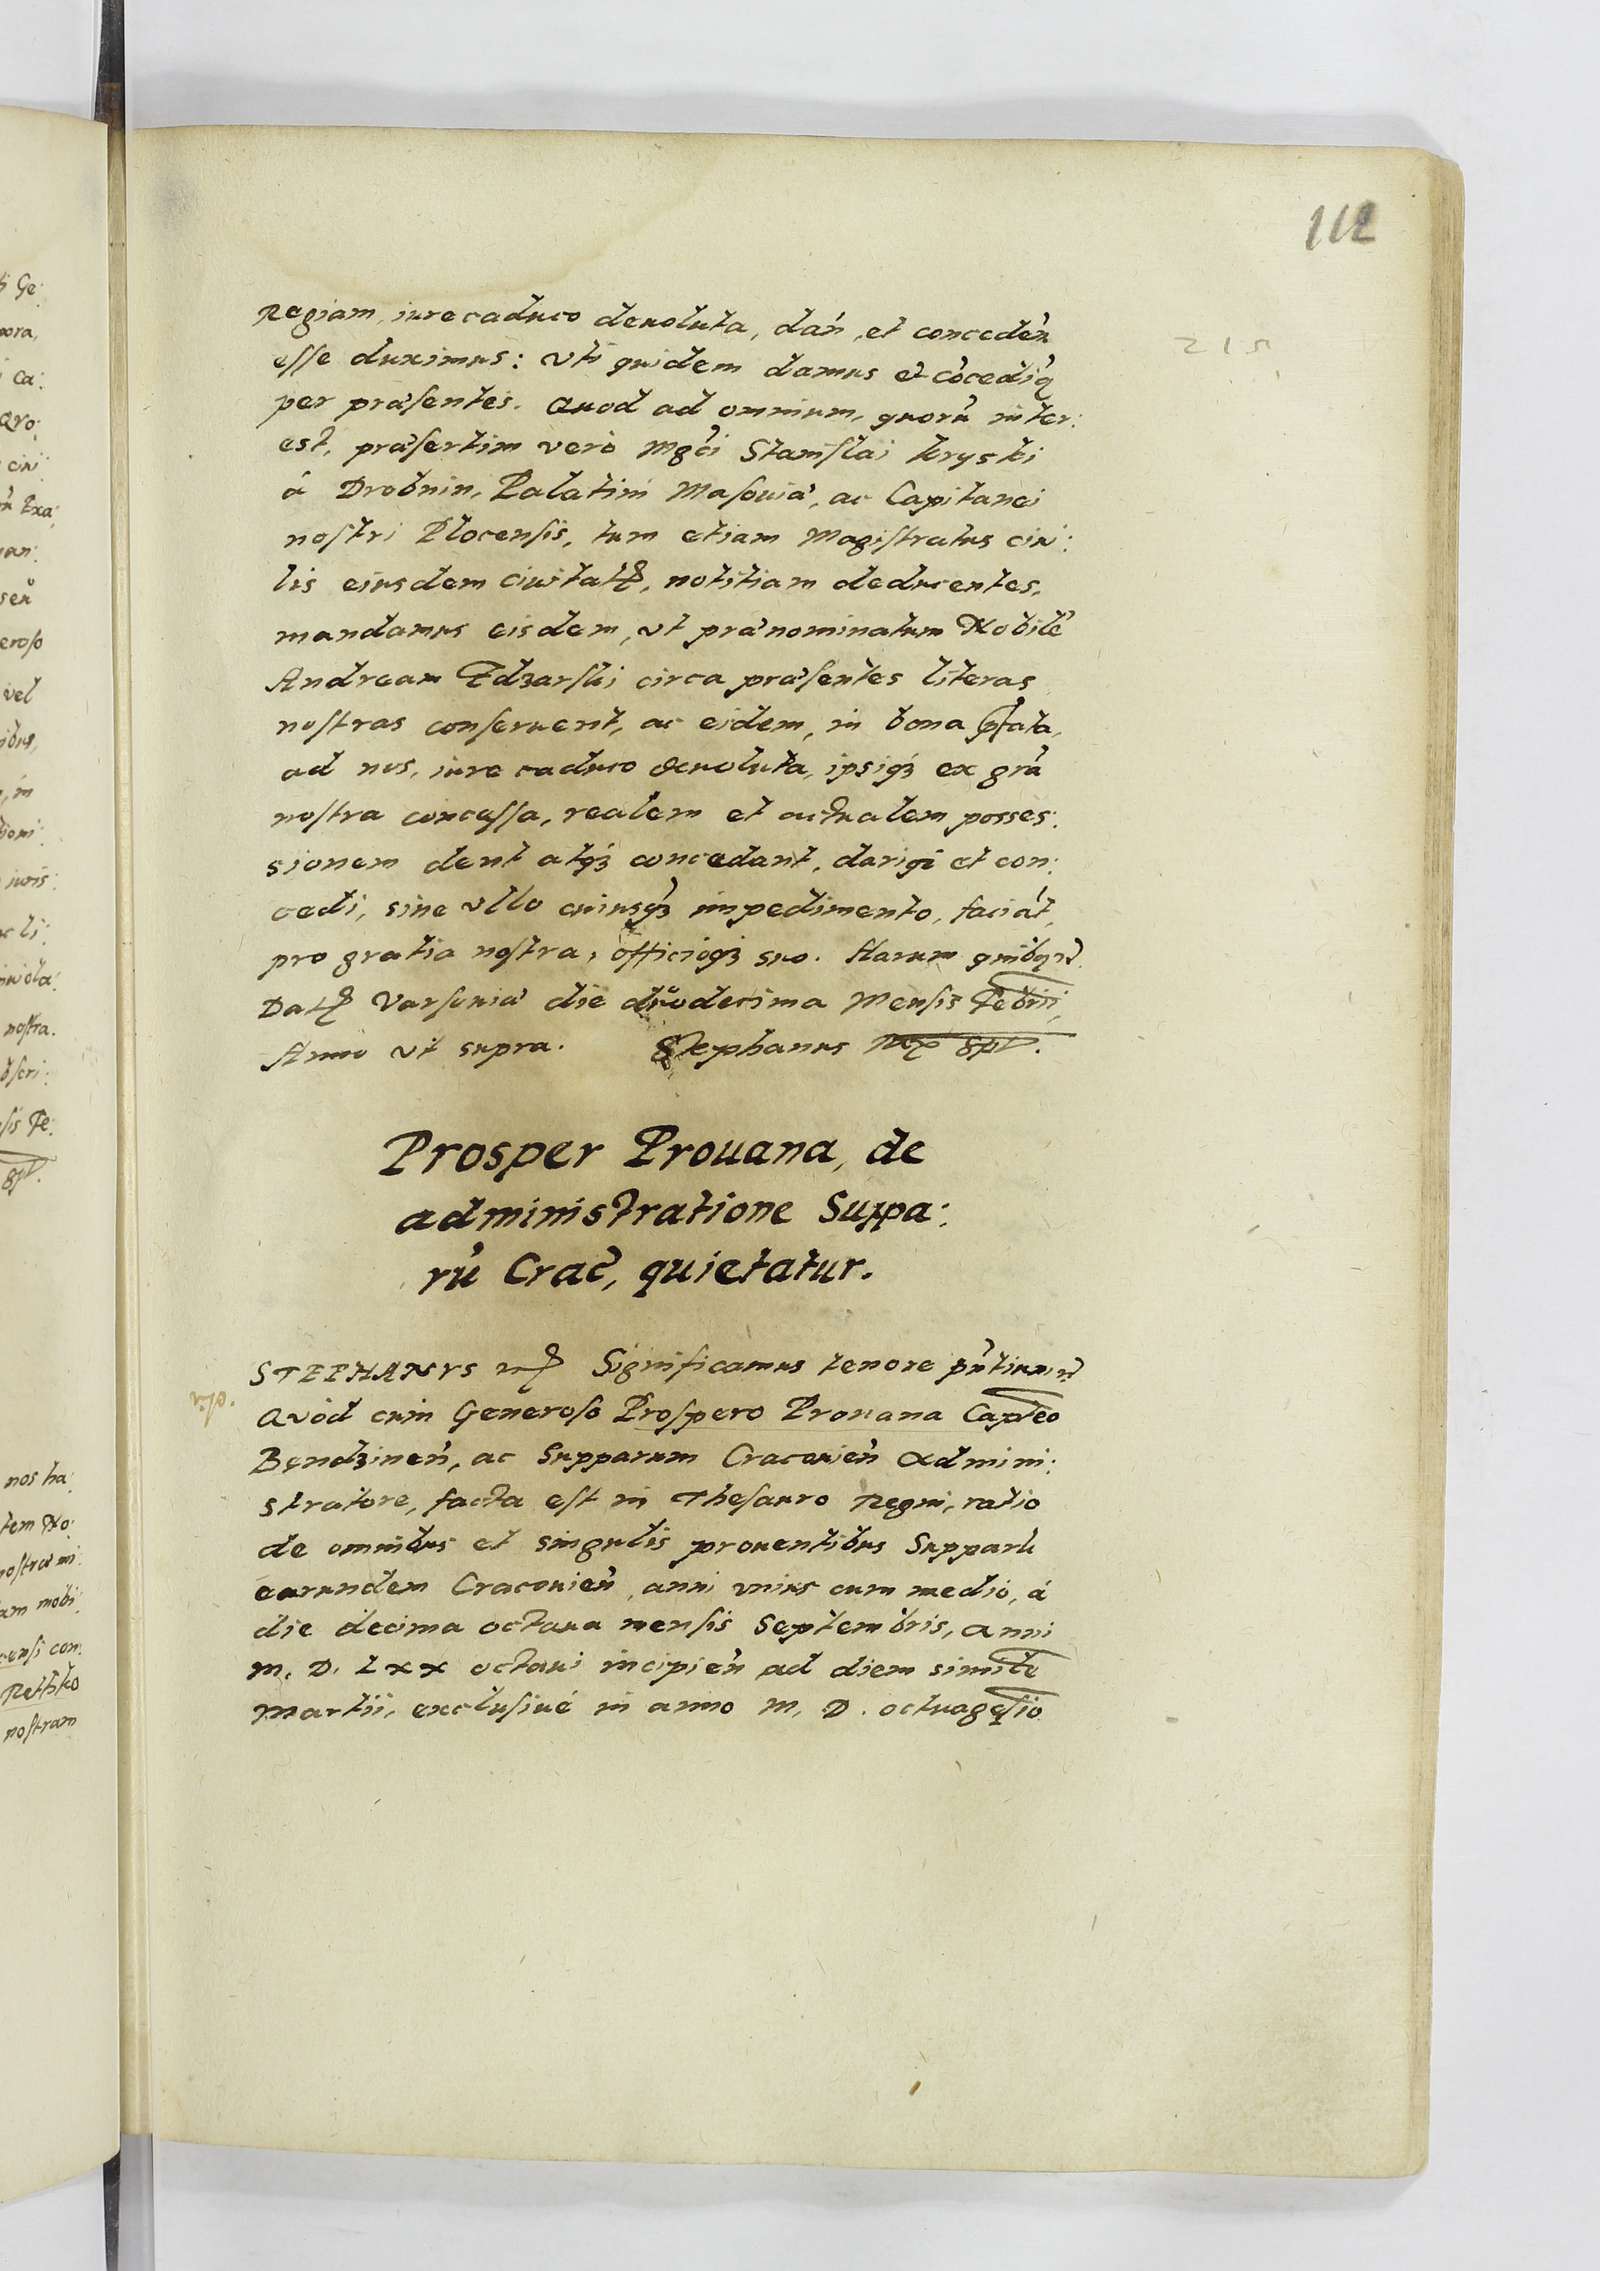 112
215
Regiam, iure caduco deuoluta, dań, et concedeń
esse duximus: Vti quidem damus et cõcediq
per præsentes. Quod ad omnium, quorũ inter:
est, præsertim verò Mgći Stanislai Kryski
á Drobnin, Palatini Masouiæ, ac Capitanei
nostri Plocensis, tum etiam Magistratus ciui:
lis eiusdem ciuitatꝭ, notitiam deducentes,
mandamus eisdem, vt prænominatum Nobilẽ
Andream Zdzarski circa præsentes literas
nostras conseruent, ac eidem, in bona pfata,
ad nos, iure caduco deuoluta, ipsiqȝ ex grã
nostra concessa, realem et actualem posses:
sionem dent atqȝ concedant, dariqȝ et con:
cedi, sine vllo cuiusqȝ impedimento, faciãt,
pro gratia nostra, officioqȝ suo. Harum quibus
Datꝭ Varsouiæ die duodecima Mensis Febrii,
Anno vt supra. Stephanus Rex sst.
Prosper Prouana, de
administratione Suppa:
rũ Crac̃, quietatur.
STEPHANVS Significamus tenore pñtium
Quòd cum Generoso Prospero Prouana Capteo
Bendzineń, ac Supparum Cracouień Admini:
stratore, facta est in Thesauro Regni, ratio
de omnibus et singulis prouentibus Supparũ
earundem Cracouień, anni vnius cum medio, á
die decima octaua mensis Septembris, anni
M. D. Lxx octaui incipień ad diem simile
Martii, exclusiuè in anno M. D. octuagesio